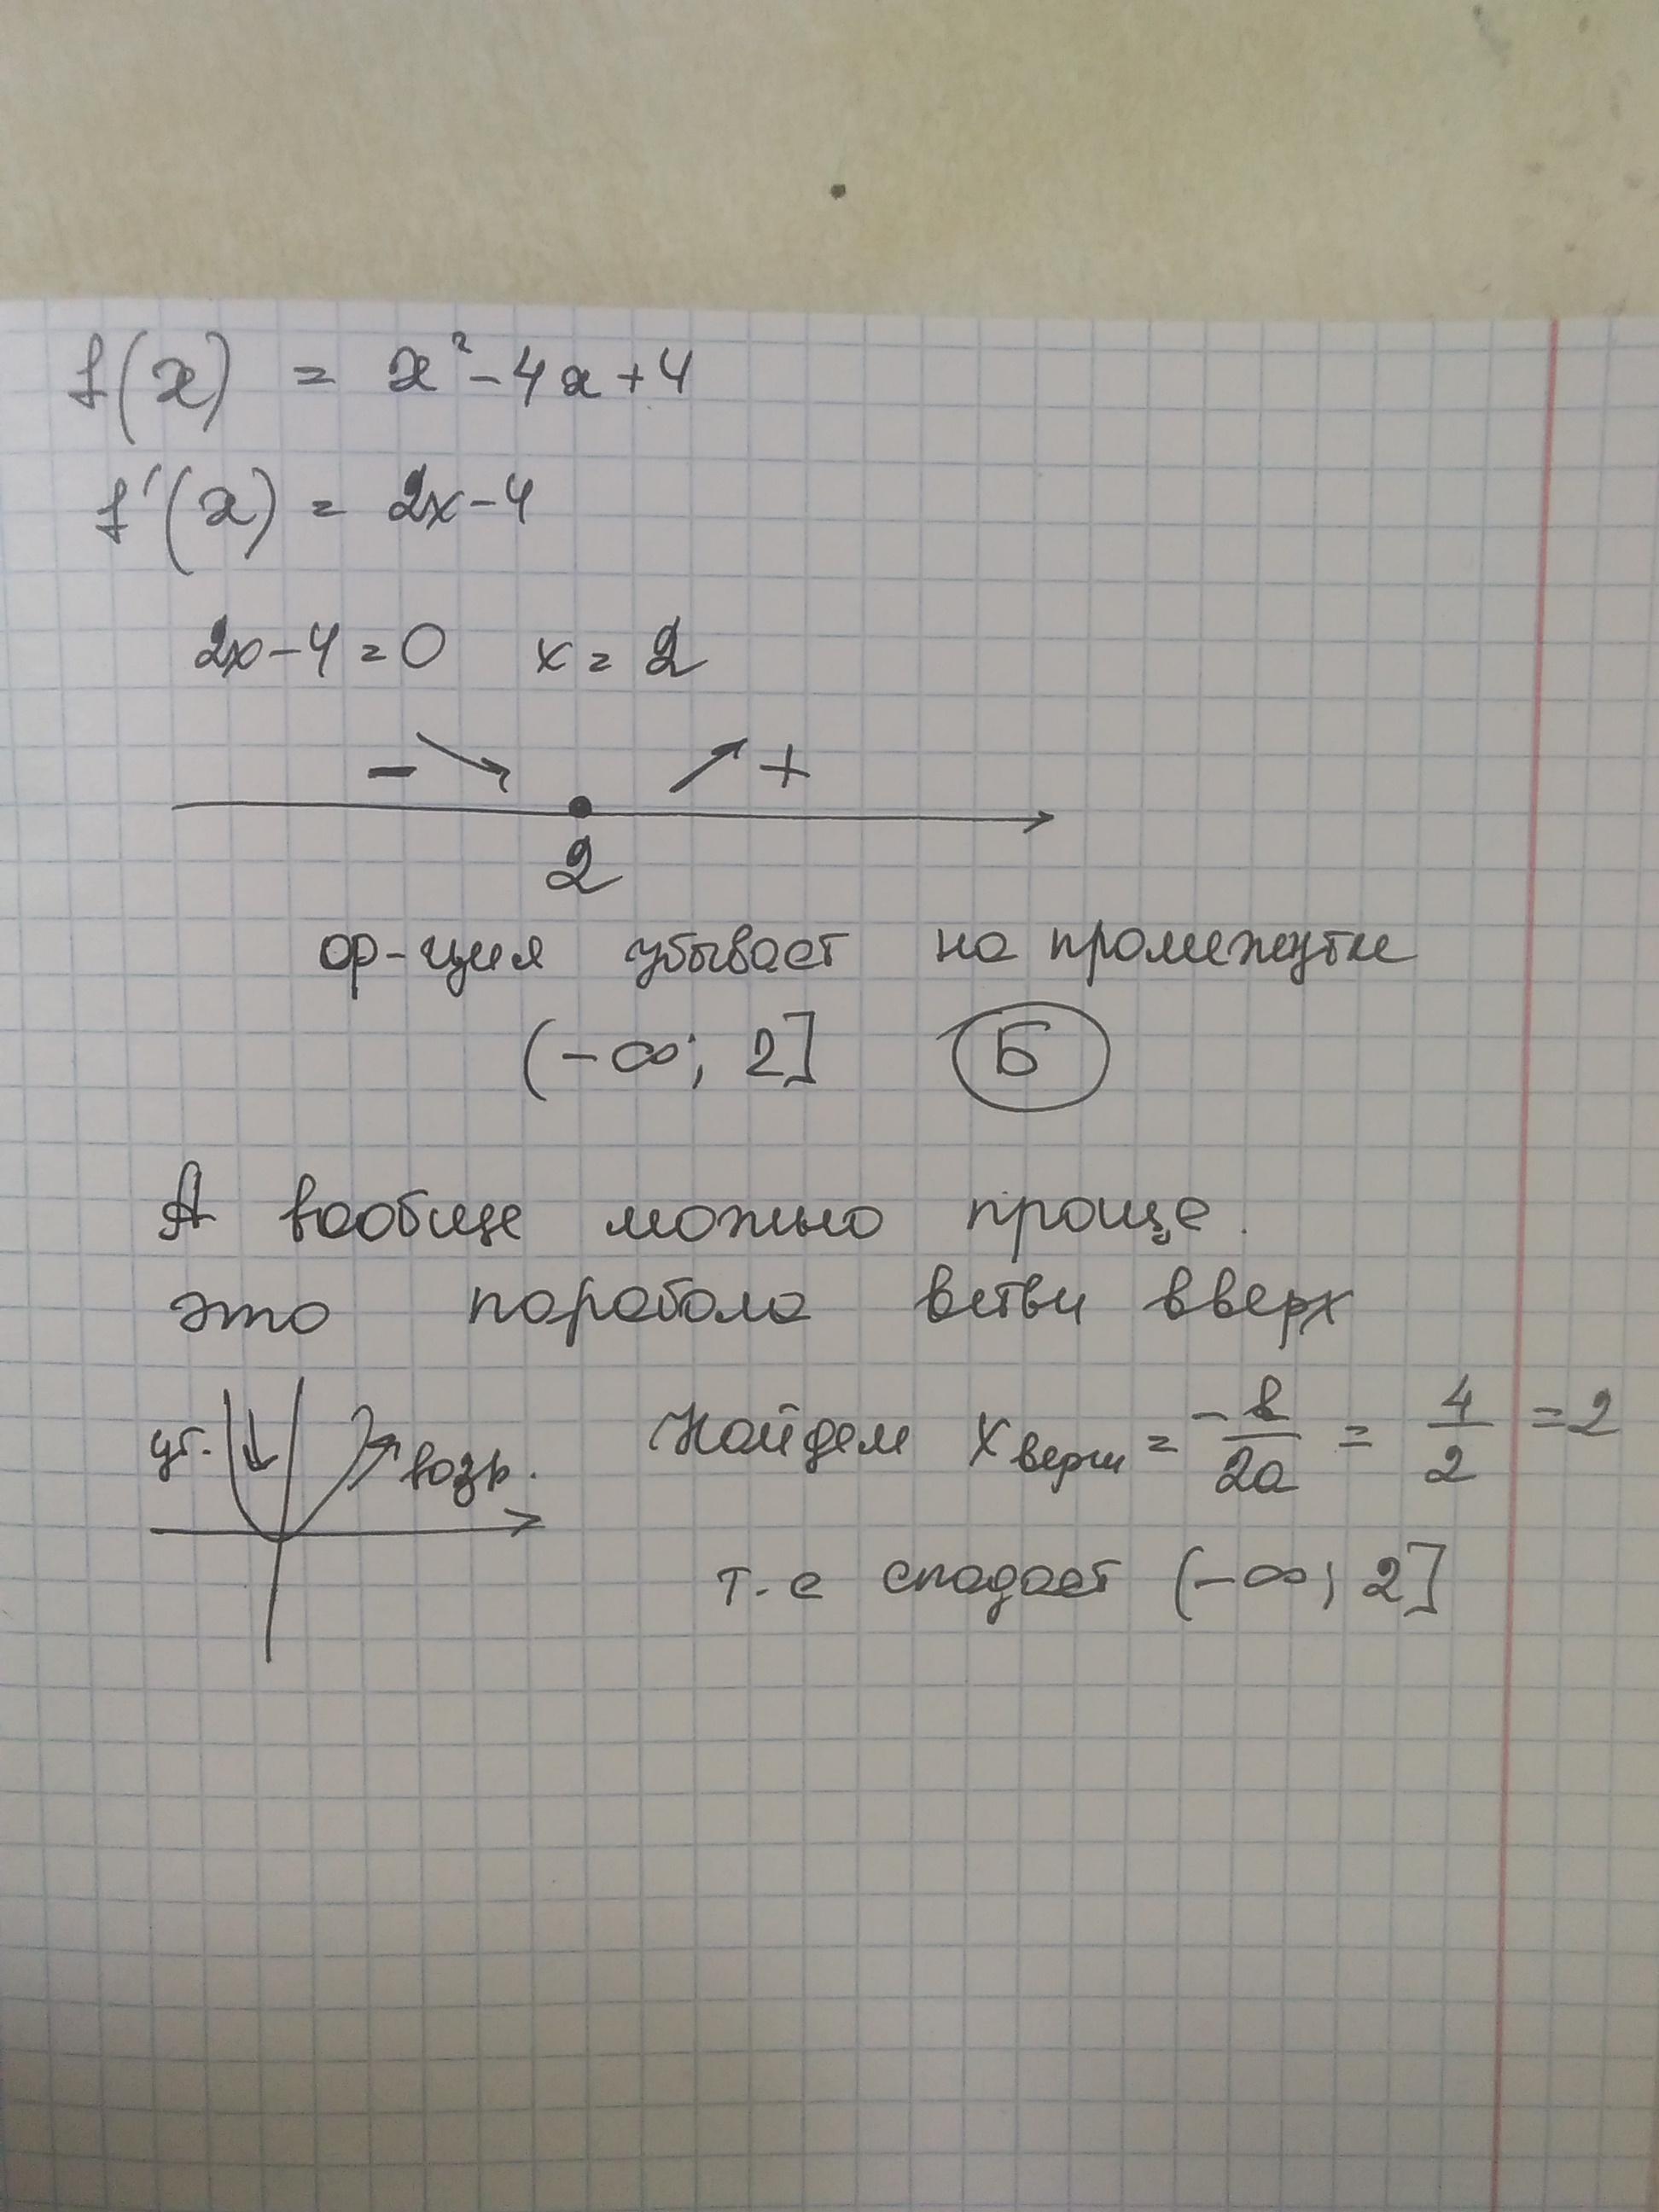 f(x) = x² - 4x + 4
f'(x) = 2x - 4
2x - 4 = 0 x = 2
- +
2
ф-ция убывает на промежутке
(-∞; 2] Б
А вообще можно проще.
это парабола ветви вверх
уб. возр. Найдем x верш = -b/2a = 4/2 = 2
т.е спадает (-∞; 2]